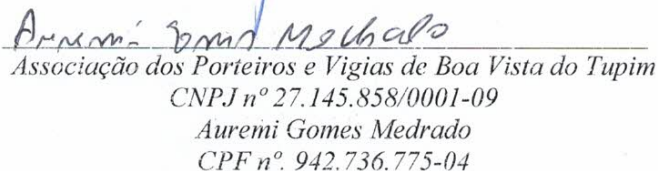 Auremi Gomes Medrado
Associação dos Porteiros e Vigias de Boa Vista do Tupim
CNPJ nº 27.145.858/0001-09
Auremi Gomes Medrado
CPF nº. 942.736.775-04